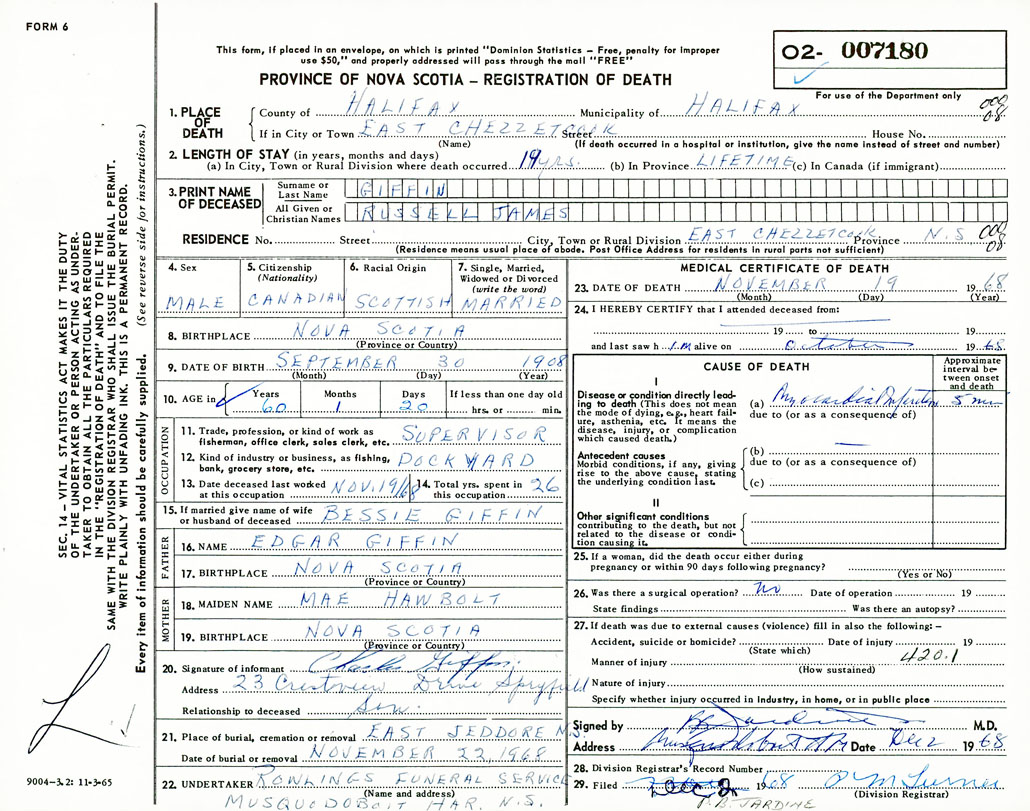 FORM 6
This form, if placed in an envelope, on which is printed "Dominion Statistics – Free, penalty for improper
use $50," and properly addressed will pass through the mail "FREE"
PROVINCE OF NOVA SCOTIA – REGISTRATION OF DEATH
02- 007180
For use of the Department only
1. PLACE OF DEATH
County of HALIFAX Municipality of HALIFAX 000 08
If in City or Town EAST CHEZZETCOOK Street House No.
(Name) (If death occurred in a hospital or institution, give the name instead of street and number)
2. LENGTH OF STAY (in years, months and days)
(a) In City, Town or Rural Division where death occurred 19 yrs. (b) In Province LIFETIME (c) In Canada (if immigrant)
3. PRINT NAME OF DECEASED
Surname or Last Name GIFFIN
All Given or Christian Names RUSSELL JAMES
RESIDENCE No. Street City, Town or Rural Division EAST CHEZZETCOOK Province N.S 000 08
(Residence means usual place of abode. Post Office Address for residents in rural parts not sufficient)
4. Sex
MALE
5. Citizenship (Nationality)
CANADIAN
6. Racial Origin
SCOTTISH
7. Single, Married, Widowed or Divorced (write the word)
MARRIED
8. BIRTHPLACE NOVA SCOTIA
(Province or Country)
9. DATE OF BIRTH SEPTEMBER 30 1908
(Month) (Day) (Year)
10. AGE in Years Months Days If less than one day old
60 1 20 hrs. or min.
OCCUPATION
11. Trade, profession, or kind of work as fisherman, office clerk, sales clerk, etc. SUPERVISOR
12. Kind of industry or business, as fishing, bank, grocery store, etc. DOCKYARD
13. Date deceased last worked at this occupation NOV. 19/68
14. Total yrs. spent in this occupation 26
15. If married give name of wife or husband of deceased BESSIE GIFFIN
FATHER
16. NAME EDGAR GIFFIN
17. BIRTHPLACE NOVA SCOTIA
(Province or Country)
MOTHER
18. MAIDEN NAME MAE HAWBOLT
19. BIRTHPLACE NOVA SCOTIA
(Province or Country)
20. Signature of informant Giffin
Address 23 Crestview Drive Spryfield
Relationship to deceased Son
21. Place of burial, cremation or removal EAST JEDDORE N.S.
Date of burial or removal NOVEMBER 22, 1968
22. UNDERTAKER ROWLINGS FUNERAL SERVICE
(Name and address)
MUSQUODOBOIT HAR. N.S.
MEDICAL CERTIFICATE OF DEATH
23. DATE OF DEATH NOVEMBER 19 1968
(Month) (Day) (Year)
24. I HEREBY CERTIFY that I attended deceased from:
19 to 19
and last saw him alive on October 1968
CAUSE OF DEATH
Approximate interval between onset and death
I
Disease or condition directly leading to death (This does not mean the mode of dying, e.g., heart failure, asthenia, etc. It means the disease, injury, or complication which caused death.)
(a) Myocardial Infarction 5 min
due to (or as a consequence of)
Antecedent causes
Morbid conditions, if any, giving rise to the above cause, stating the underlying condition last.
(b)
due to (or as a consequence of)
(c)
II
Other significant conditions
contributing to the death, but not related to the disease or condition causing it.
25. If a woman, did the death occur either during
pregnancy or within 90 days following pregnancy?
(Yes or No)
26. Was there a surgical operation? No Date of operation 19
State findings Was there an autopsy?
27. If death was due to external causes (violence) fill in also the following:–
Accident, suicide or homicide? Date of injury 19
(State which)
Manner of injury 420.1
(How sustained)
Nature of injury
Specify whether injury occurred in Industry, in home, or in public place
Signed by Jardine M.D.
Address Date Dec 2 1968
28. Division Registrar's Record Number
29. Filed Dec 2 1968
(Division Registrar)
T.B. JARDINE
SEC. 14 – VITAL STATISTICS ACT MAKES IT THE DUTY
OF THE UNDERTAKER OR PERSON ACTING AS UNDER-
TAKER TO OBTAIN ALL THE PARTICULARS REQUIRED
IN THE "REGISTRATION OF DEATH" AND TO FILE THE
SAME WITH THE DIVISION REGISTRAR WHO SHALL ISSUE THE BURIAL PERMIT.
WRITE PLAINLY WITH UNFADING INK. THIS IS A PERMANENT RECORD.
Every item of information should be carefully supplied. (See reverse side for instructions.)
9004–3.2: 11-3-65